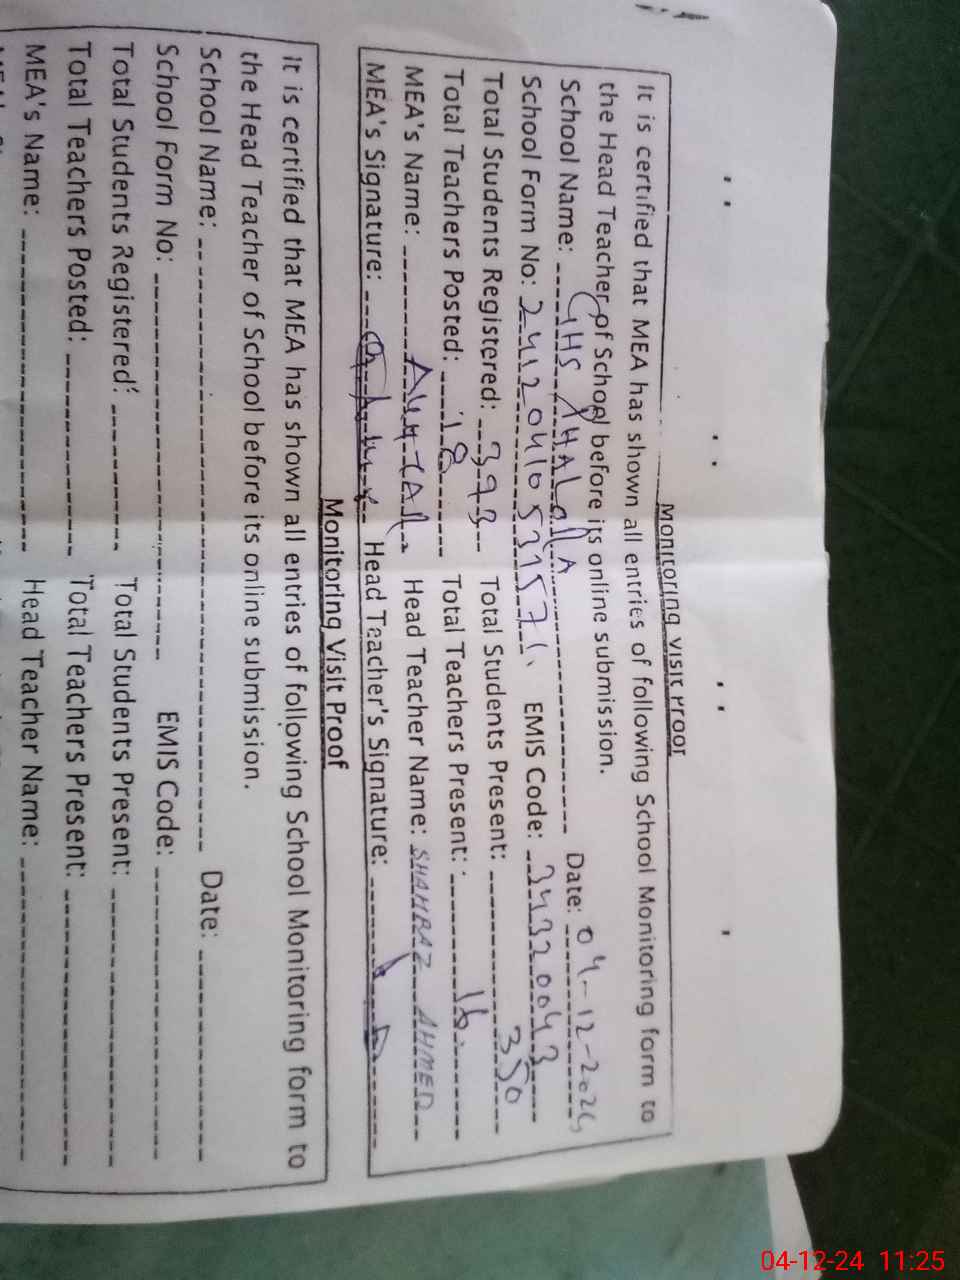 Monitoring Visit Proof
It is certified that MEA has shown all entries of following School Monitoring form to
the Head Teacher of School before its online submission.
School Name: GHS Date: 04-12-2024
School Form No: EMIS Code: 34320043
Total Students Registered: 393 Total Students Present: 350
Total Teachers Posted: 18 Total Teachers Present: 16
MEA's Name: Head Teacher Name: SHAHBAZ AHMED
MEA's Signature: Head Teacher's Signature:
Monitoring Visit Proof
It is certified that MEA has shown all entries of following School Monitoring form to
the Head Teacher of School before its online submission.
School Name: Date:
School Form No: EMIS Code:
Total Students Registered: Total Students Present:
Total Teachers Posted: Total Teachers Present:
MEA's Name: Head Teacher Name:
04-12-24 11:25